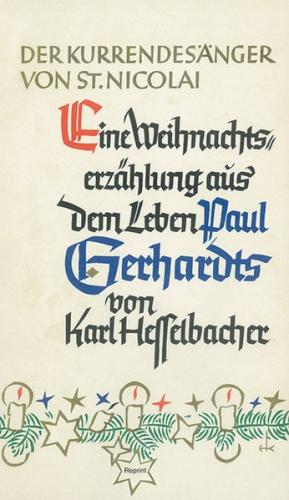 DER KURRENDESÄNGER
VON ST. NICOLAI
Eine Weihnachts=
erzählung aus
dem Leben Paul
Gerhardts
von
Karl Hesselbacher
Reprint